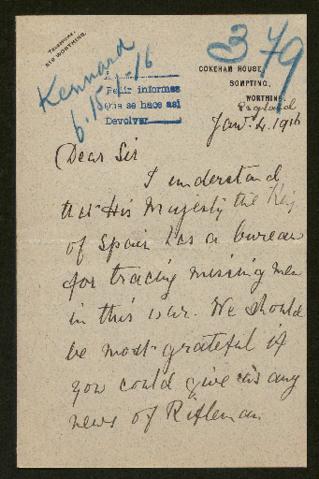 TELEPHONE:
818 WORTHING.
379
Kennard
6.15-1-16
Pedir informes
Que se hace asi
Devolver
COKEHAM HOUSE,
SOMPTING,
WORTHING.
England
Jan. 4. 1916
Dear Sir
I understand
that His Majesty the King
of Spain has a bureau
for tracing missing men
in this war. We should
be most grateful if
you could give us any
news of Rifleman